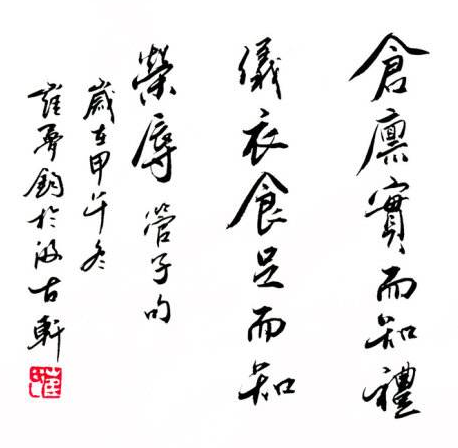 倉廩實而知禮
儀衣食足而知
榮辱 管子句
歲在甲午冬
崔鈞於汲古軒